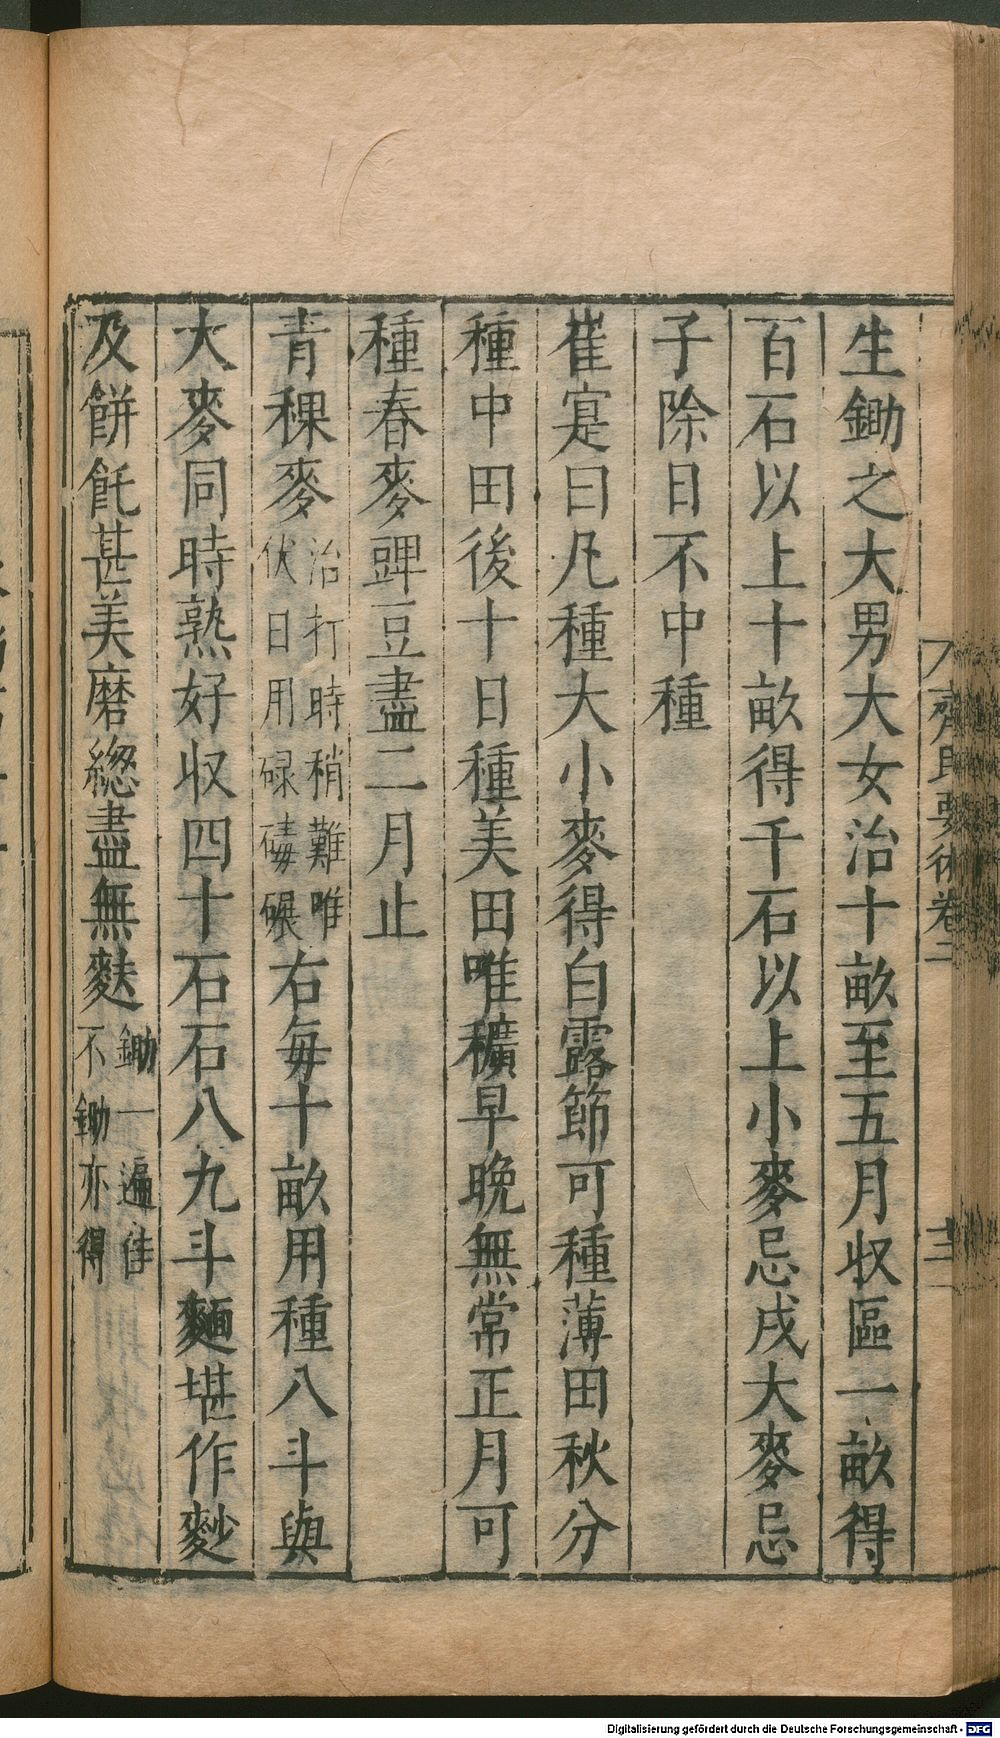 生鋤之大男大女治十畝至五月收區一畝得
百石以上十畝得千石以上小麥忌戌大麥忌
子除日不中種
崔寔曰凡種大小麥得白露節可種薄田秋分
種中田後十日種美田唯穬早晚無常正月可
種春麥豍豆盡二月止
青稞麥治打時稍難唯伏日用碌碡碾右每十畝用種八斗與
大麥同時熟好收四十石石八九斗麵堪作麨
及餅飥甚美磨總盡無麩鋤一遍佳不鋤亦得
齊民要術卷二
十二
Digitalisierung gefördert durch die Deutsche Forschungsgemeinschaft - DFG